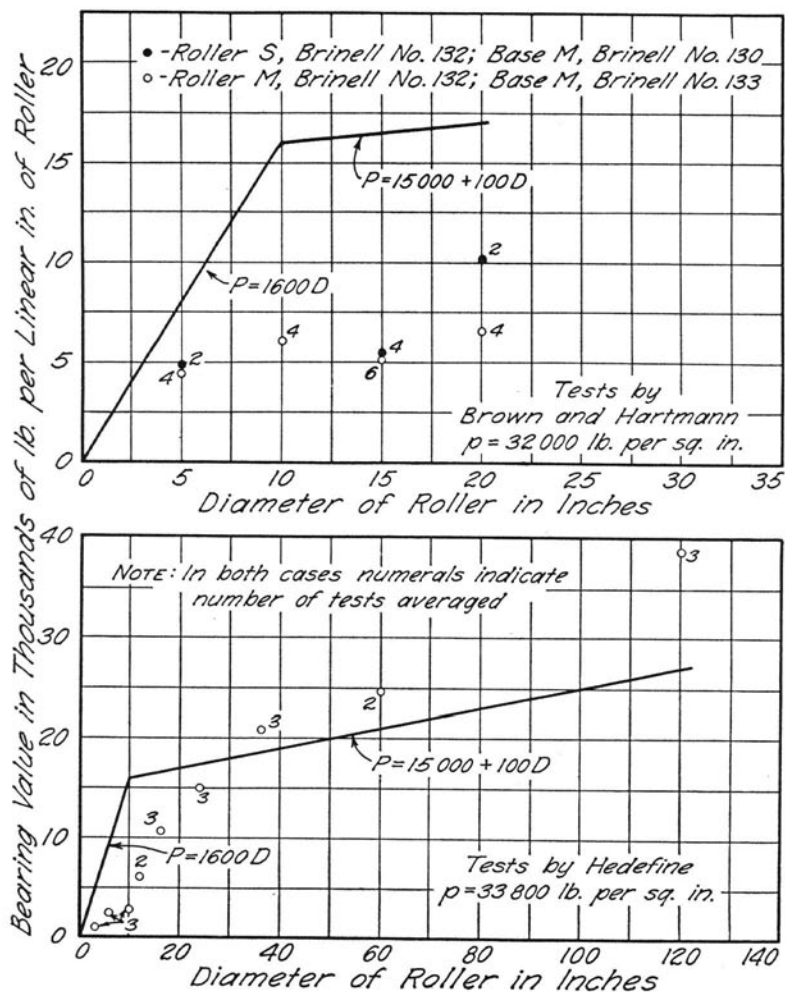 Bearing Value in Thousands of lb. per Linear in. of Roller
20
15
10
5
0
●-Roller S, Brinell No. 132; Base M, Brinell No. 130
○-Roller M, Brinell No. 132; Base M, Brinell No. 133
P=15000+100D
P=1600D
2
4
4
4
6
2
4
Tests by
Brown and Hartmann
p=32000 lb. per sq. in.
0 5 10 15 20 25 30 35
Diameter of Roller in Inches
40
30
20
10
0
NOTE: In both cases numerals indicate
number of tests averaged
3
2
3
3
3
2
3
P=15000+100D
P=1600D
Tests by Hedefine
p=33800 lb. per sq. in.
0 20 40 60 80 100 120 140
Diameter of Roller in Inches